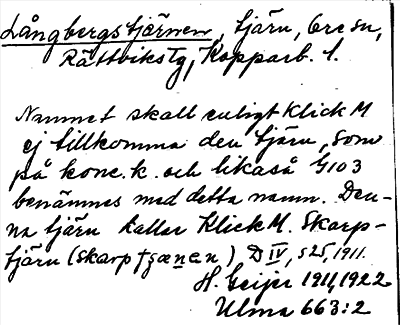 Långbergstjärnen, tjärn, Ore sn,
Rättvikstg, Kopparb. l.
Namnet skall enligt Klick M
ej tillkomma den tjärn, som
på konc. k. och likaså G103
benämnes med detta namn. Den-
na tjärn kallar Klick M. Skarp-
tjärn (skarp), D IV, s 25, 1911.
H. Geijer 1911, 1922
Ulma 663:2